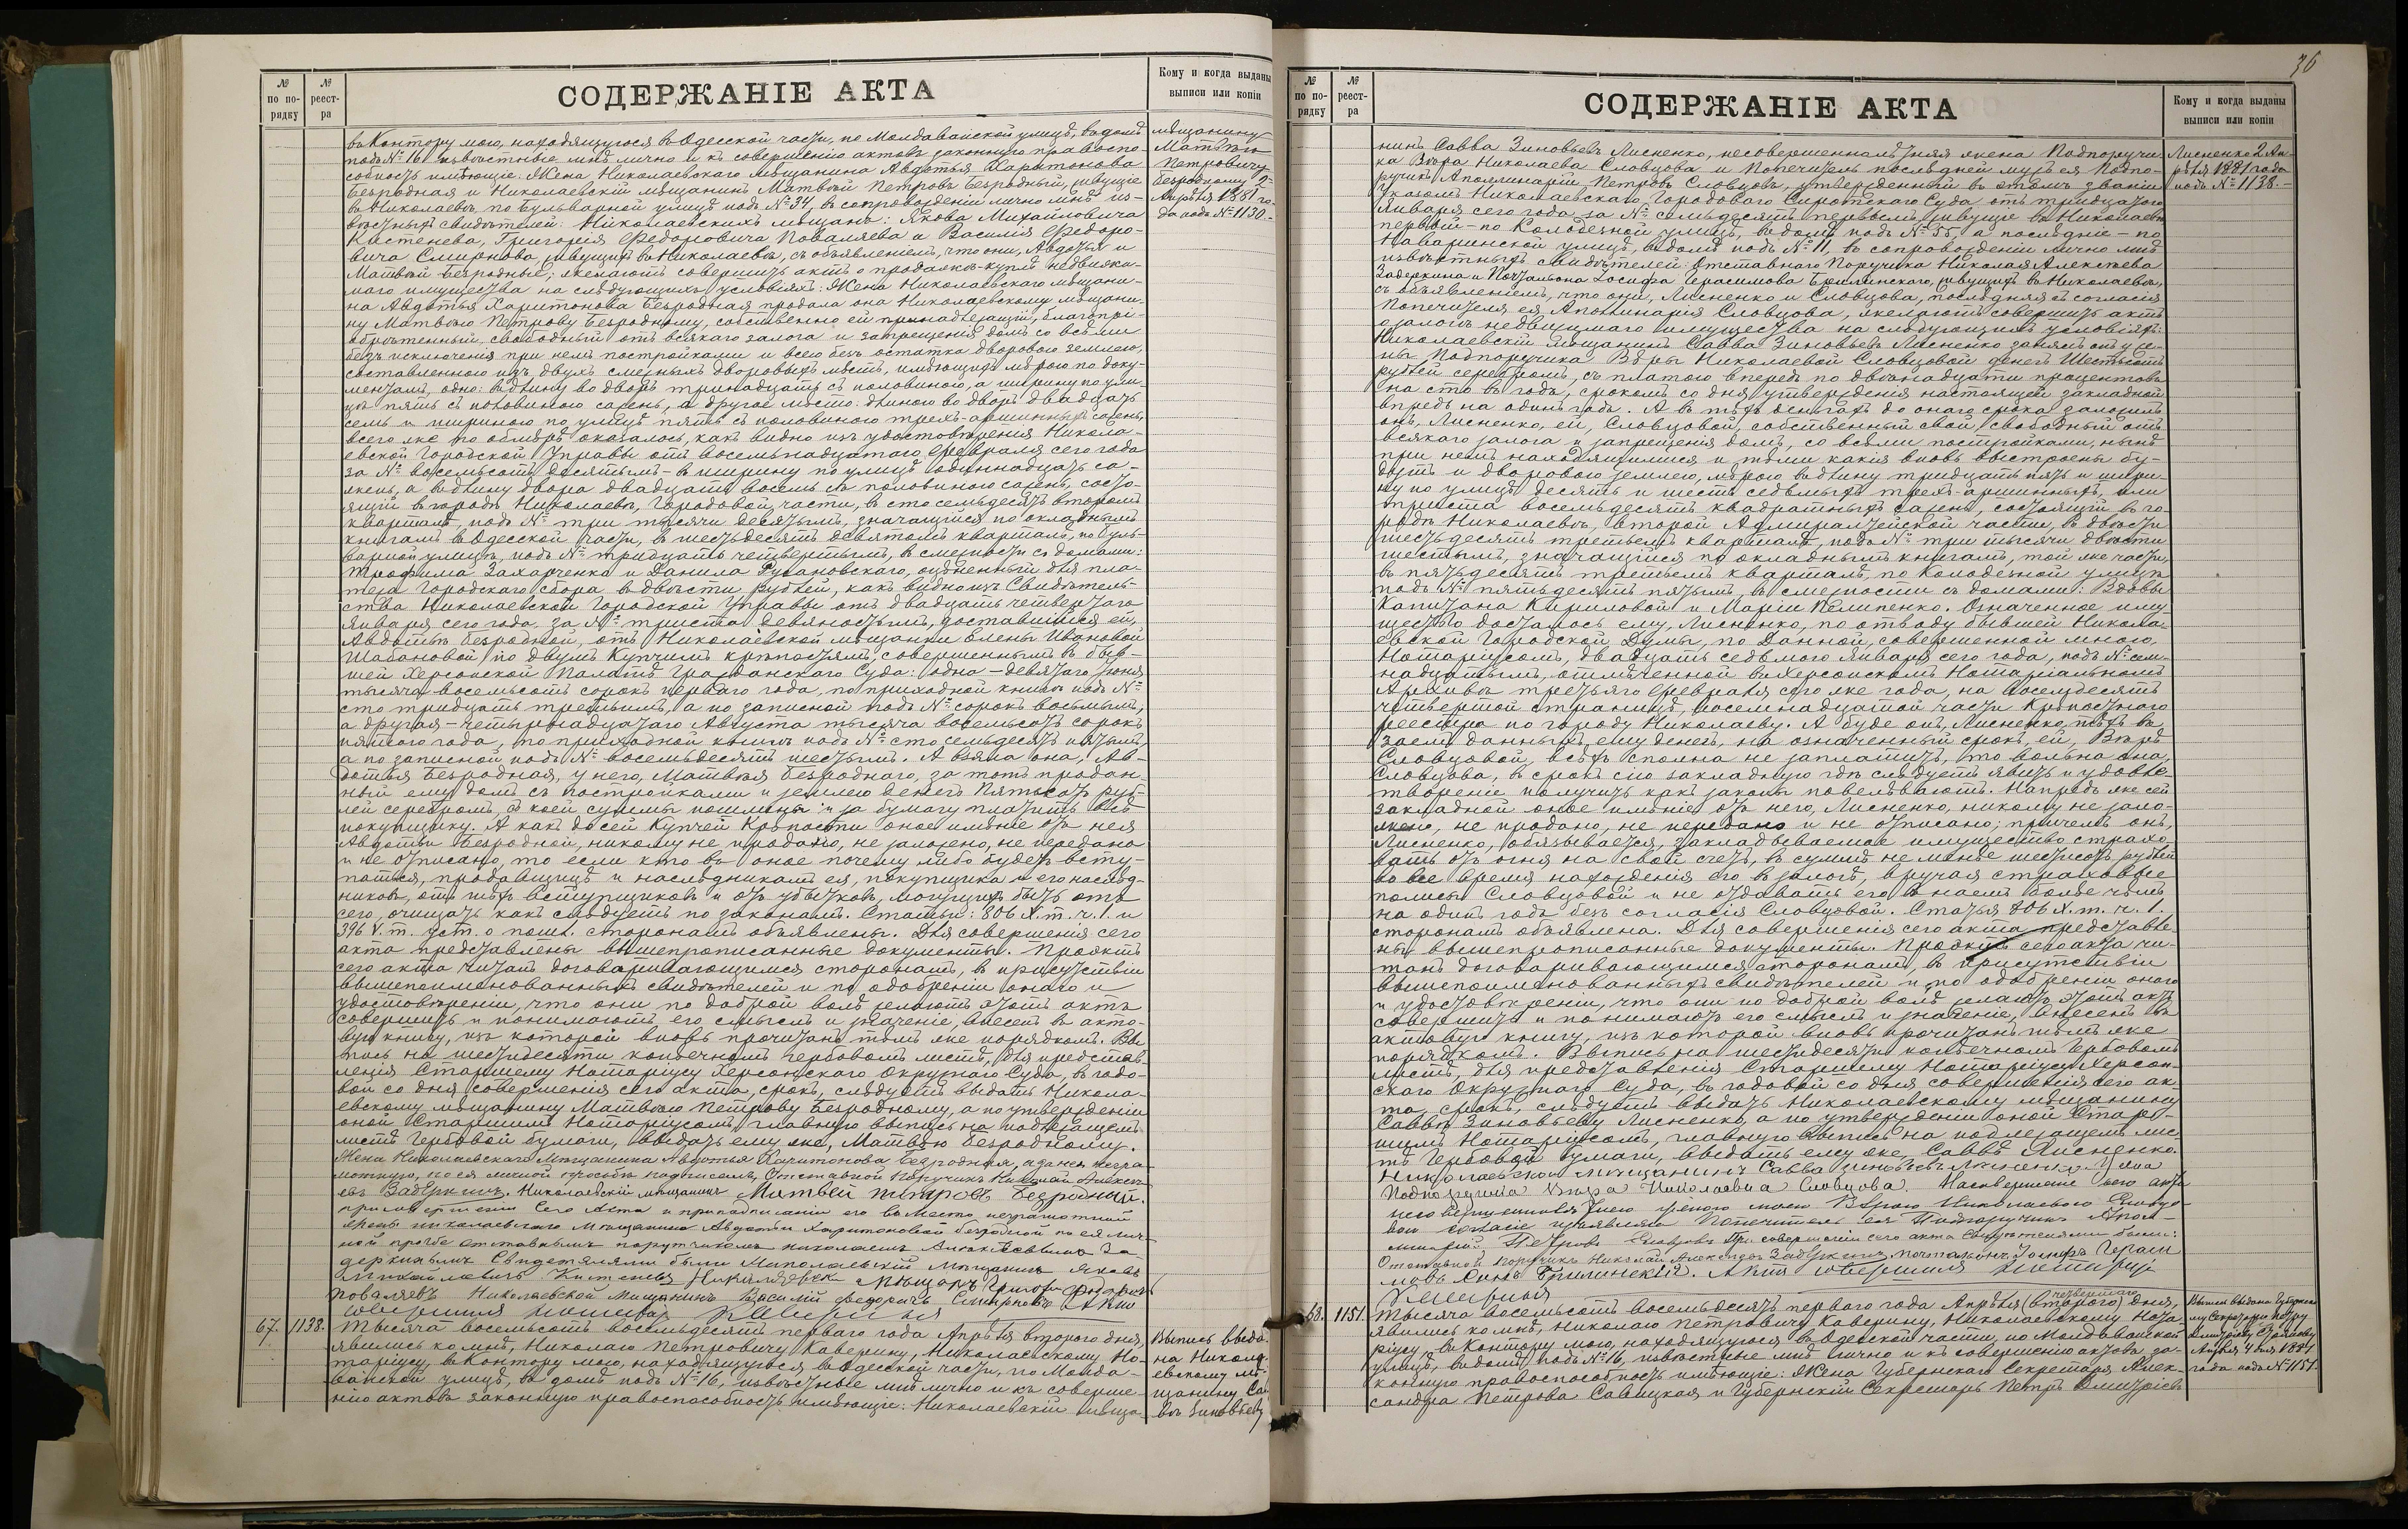 № по по-рядку
№ реест-ра
СОДЕРЖАНІЕ АКТА
Кому и когда выданы выписи или копіи
въ Контору мою, находящуюся въ Одесской части, по Молдаванской улицѣ, въ домѣ
подъ № 16 извѣстные мнѣ лично и къ совершенію актовъ законную правоспо-
собность имѣющіе: Жена Николаевскаго мѣщанина Авдотья Харитонова
Безродная и Николаевскій мѣщанинъ Матвѣй Петровъ Безродный, живущіе
въ Николаевѣ, по Бульварной улицѣ подъ № 34, въ сопровожденіи лично мнѣ из-
вѣстныхъ свидѣтелей: Николаевскихъ мѣщанъ: Якова Михайловича
Кистенева, Григорія Федоровича Поваляева и Василія Федоро-
вича Смирнова, живущихъ въ Николаевѣ, съ объявленіемъ, что они, Авдотья и
Матвѣй Безродные, желаютъ совершить актъ о продажѣ-куплѣ недвижи-
маго имущества на слѣдующихъ условіяхъ: Жена Николаевскаго мѣщани-
на Авдотья Харитонова Безродная продала она Николаевскому мѣщани-
ну Матвѣю Петрову Безродному, собственно ей принадлежащій, благопрі-
обрѣтенный, свободный отъ всякаго залога и запрещенія домъ со всѣми
безъ исключенія при немъ постройками и всею безъ остатка дворовою землею,
составленною изъ двухъ смежныхъ дворовыхъ мѣстъ, имѣющихъ мѣрою по доку-
ментамъ, одно: въ длину во дворъ тринадцать съ половиною, а ширину по ули-
цѣ пять съ половиною сажень, а другое мѣсто: длиною во дворъ двадцать
семь и шириною по улицѣ пять съ половиною трехъ-аршинныхъ сажень,
всего же по обмѣрѣ оказалось, какъ видно изъ удостовѣренія Никола-
евской Городской Управы отъ восемьнадцатаго Февраля сего года
за № восемьсотъ десятымъ – въ ширину по улицѣ одиннадцать са-
жень, а въ длину двора двадцать восемь съ половиною сажень, состо-
ящій въ городѣ Николаевѣ, Городовой части, въ сто семьдесятъ второмъ
кварталѣ, подъ № три тысячи десятымъ, значащійся по окладнымъ
книгамъ въ Одесской части, въ шестьдесятъ девятомъ кварталѣ, по Буль-
варной улицѣ, подъ № тридцать четвертымъ, въ смежности съ домами:
Трофима Захарченка и Данила Рудановскаго, оцѣненный для пла-
тежа городскаго сбора въ двѣсти рублей, какъ видно изъ Свидѣтель-
ства Николаевской Городской Управы отъ двадцать четвертаго
Января сего года за № триста девяностымъ, доставшійся ей,
Авдотьѣ Безродной, отъ Николаевской мѣщанки Елены Ивановой
Шабановой по двумъ Купчимъ крѣпостямъ, совершеннымъ въ быв-
шей Херсонской Палатѣ Гражданскаго Суда: одна – девятаго Іюня
тысяча восемьсотъ сорокъ перваго года, по приходной книгѣ подъ №
сто тридцать третьимъ, а по записной подъ № сорокъ восьмымъ,
а другая – четырнадцатаго Августа тысяча восемьсотъ сорокъ
пятаго года, по приходной книгѣ подъ № сто семьдесятъ пятымъ,
а по записной подъ № восемьдесятъ шестымъ. А взяла она, Ав-
дотья Безродная, у него, Матвѣя Безроднаго, за тотъ продан-
ный ему домъ съ постройками и землею денегъ Пятьсотъ руб-
лей серебромъ, съ коей суммы пошлины и за бумагу платить ему
покупщику. А какъ до сей Купчей Крѣпости оное имѣніе отъ нея
Авдотьи Безродной, никому не продано, не заложено, не передано
и не отписано, то если кто въ оное почему либо будетъ всту-
паться, продавщицѣ и наслѣдникамъ ея, покупщика и его наслѣд-
никовъ, отъ тѣхъ вступщиковъ и отъ убытковъ, могущихъ быть отъ
сего, очищать какъ слѣдуетъ по законамъ. Статьи: 806 X. т. ч. 1. и
396 V. т. уст. о пошл. сторонамъ объявлены. Для совершенія сего
акта представлены вышепрописанные документы. Проэктъ
сего акта читанъ договаривающимся сторонамъ, въ присутствіи
вышепоименованныхъ свидѣтелей и по одобреніи онаго и
удостовѣреніи, что они по доброй волѣ желаютъ этотъ актъ
совершить и понимаютъ его смыслъ и значеніе, внесенъ въ акто-
вую книгу, изъ которой вновь прочитанъ тѣмъ же порядкомъ. Вы-
пись на шестидесяти копѣечномъ гербовомъ листѣ, для представ-
ленія Старшему Нотаріусу Херсонскаго Окружнаго Суда, въ годо-
вой со дня совершенія сего акта, срокъ, слѣдуетъ выдать Никола-
евскому мѣщанину Матвѣю Петрову Безродному, а по утвержденіи
оной Старшимъ Нотаріусомъ, главную выпись на подлежащемъ
листѣ Гербовой бумаги, выдать ему же, Матвѣю Безродному.
Жена Николаевскаго Мѣщанина Авдотья Харитонова Безродная, а за нея негра-
мотную, по ея личной просьбѣ подписалъ, Отставной Поручикъ Николай Алексѣ-
евъ Задеркинъ. Николаевскій мѣщанинъ Матвей Петровъ Безродный.
при совершеніи Сего Акта и приподписаніи его въ мѣсто неграмотной
жены николаевскаго мѣщанина Авдотьи Харитоновой безродной по ея лич-
ной прозбе отставнымъ поручикомъ николаемъ Алексѣевымъ За-
деркинымъ Свидетелями были Николаевскій Мещанинъ Яковъ
Михайловичъ Кистеневъ Николаевск Мещанъ Григори Федоровъ
поваляевъ Николаевской Мещанинъ Василій Федоричъ Смирновъ Актъ
совершилъ Нотаріусъ Каверинъ
мѣщанину
Матвѣю
Петровичу
Безродному 2
Апрѣля 1881 го-
да подъ № 1130.-
67.
1138.
Тысяча восемьсотъ восемьдесятъ перваго года Апрѣля втораго дня,
явились ко мнѣ, Николаю Петровичу Каверину, Николаевскому Но-
таріусу, въ Контору мою, находящуюся въ Одесской части, по Молда-
ванской улицѣ, въ домѣ подъ № 16, извѣстные мнѣ лично и къ соверше-
нію актовъ законную правоспособность имѣющіе: Николаевскій мѣща-
Выпись выда-
на Никола-
евскому мѣ-
щанину Са-
вѣ Зиновьеву
36
№ по по-рядку
№ реест-ра
СОДЕРЖАНІЕ АКТА
Кому и когда выданы выписи или копіи
нинъ Савва Зиновьевъ Лисненко, несовершеннолѣтняя жена Подпоручи-
ка Вѣра Николаева Словцова и Попечитель послѣдней мужъ ея Подпо-
ручикъ Аполлинарій Петровъ Словцовъ, утвержденный въ этомъ званіи
Указомъ Николаевскаго Городоваго Сиротскаго Суда отъ тридцатаго
Января сего года за № семьдесятъ первымъ, живущіе въ Николаевѣ
первый – по Колодезной улицѣ, въ домѣ подъ № 55, а послѣдніе – по
Наваринской улицѣ, въ домѣ подъ № 11, въ сопровожденіи лично мнѣ
извѣстныхъ свидѣтелей: Отставнаго Поручика Николая Алексѣева
Задеркина и Почтальона Іосифа Герасимова Брилинскаго, живущихъ въ Николаевѣ,
съ объявленіемъ, что они, Лисненко и Словцова, послѣдняя съ согласія
Попечителя ея, Аполлинарія Словцова, желаютъ совершить актъ
о залогѣ недвижимаго имущества на слѣдующихъ условіяхъ:
Николаевскій мѣщанинъ Савва Зиновьевъ Лисненко занялъ онъ у же-
ны Подпоручика Вѣры Николаевой Словцовой денегъ Шестьсотъ
рублей серебромъ, съ платою впередъ по двѣнадцати процентовъ
на сто въ годъ, срокомъ со дня утвержденія настоящей закладной
впредь на одинъ годъ. А въ тѣхъ деньгахъ до онаго срока заложилъ
онъ, Лисненко, ей, Словцовой, собственный свой свободный отъ
всякаго залога и запрещенія домъ, со всѣми постройками, нынѣ
при немъ находящимися и тѣми какія вновь выстроены бу-
дутъ и дворовою землею, мѣрою въ длину тридцать пять и шири-
ну по улицѣ десять и шесть седьмыхъ трехъ-аршинныхъ, или
триста восемьдесятъ квадратныхъ сажень, состоящій въ го-
родѣ Николаевѣ, второй Адмиралтейской части, въ двѣсти
шестьдесятъ третьемъ кварталѣ, подъ № три тысячи двѣсти
шестымъ, значащійся по окладнымъ книгамъ, той же части,
въ пятьдесятъ третьемъ кварталѣ, по Колодезной улицѣ
подъ № пятьдесятъ пятымъ, въ смежности съ домами: Вдовы
Капитана Кириловой и Маріи Пелипенко. Означенное иму-
щество досталось ему, Лисненко, по отводу бывшей Никола-
евской Городской Думы, по Данной, совершенной мною,
Нотаріусомъ, двадцать седьмого Января сего года, подъ № сем-
надцатымъ, отмѣченной въ Херсонскомъ Нотаріальномъ
Архивѣ третьяго Февраля сего же года, на восемьдесятъ
четвертой страницѣ, восемнадцатой части Крѣпостнаго
реестра по городу Николаеву. А буде онъ, Лисненко, тѣхъ въ
заемъ данныхъ ему денегъ, на означенный срокъ, ей, Вѣрѣ
Словцовой, всѣхъ сполна не заплатитъ, то вольна она,
Словцова, въ срокъ сію закладную гдѣ слѣдуетъ явить и удовле-
твореніе получить какъ законы повелѣваютъ. Напредь же сей
закладной оное имѣніе отъ него, Лисненко, никому не зало-
жено, не продано, не передано и не отписано; причемъ онъ,
Лисненко, обязывается, закладываемое имущество страхо-
вать отъ огня на свой счетъ, въ суммѣ не менѣе шестисотъ рублей
во все время нахожденія его въ залогѣ, вручая страховые
полисы Словцовой и не отдавать его въ наемъ болѣе чѣмъ
на одинъ годъ безъ согласія Словцовой. Статья 806 X. т. ч. 1.
сторонамъ объявлена. Для совершенія сего акта представле-
ны вышепрописанные документы. Проэктъ сего акта чи-
танъ договаривающимся сторонамъ, въ присутствіи
вышепоименованныхъ свидѣтелей и по одобреніи онаго
и удостовѣреніи, что они по доброй волѣ желаютъ этотъ актъ
совершить и понимаютъ его смыслъ и значеніе, внесенъ въ
актовую книгу, изъ которой вновь прочитанъ тѣмъ же
порядкомъ. Выпись на шестидесяти копѣечномъ Гербовомъ
листѣ, для представленія Старшему Нотаріусу Херсон-
скаго Окружнаго Суда, въ годовой со дня совершенія сего ак-
та срокъ, слѣдуетъ выдать Николаевскому мѣщанину
Саввѣ Зиновьеву Лисненко, а по утвержденіи оной Стар-
шимъ Нотаріусомъ, главную выпись на подлежащемъ лис-
тѣ Гербовой бумаги, выдать ему же, Саввѣ Лисненко.
Николаевской мѣщанинъ Савва Зиновьевъ Лисненко. Жена
Подпоручика Вѣра Николаевна Словцова. На совершеніе сего акта
несовершеннолѣтнею женою моею Вѣрою Николаевою Словцо-
вою согласіе изъявляю Попечитель ея Подпоручикъ Апол-
линарій Петровъ Словцовъ При совершеніи сего акта Свидѣтелями были:
Отставной Поручикъ Николай Алексѣевъ Задеркинъ, почтальонъ Іосифъ Гераси
мовъ Сынъ Брилинскій. Актъ совершилъ Нотаріусъ
Каверинъ
Лисненко 2 Ап-
рѣля 1881 года
подъ № 1138.-
68.
1151.
Тысяча восемьсотъ восемьдесятъ перваго года Апрѣля (втораго) четвертаго дня,
явились ко мнѣ, Николаю Петровичу Каверину, Николаевскому Нота-
ріусу, въ Контору мою, находящуюся въ Одесской части, по Молдаванской
улицѣ, въ домѣ подъ № 16, извѣстные мнѣ лично и къ совершенію актовъ за-
конную правоспособность имѣющіе: Жена Губернскаго Секретаря Алек-
сандра Петрова Савицкая и Губернскій Секретарь Петръ Дмитріевъ
Выпись выдана Губернско-
му Секретарю Петру
Дмитріеву
Апрѣля 4 дня 1881
года подъ № 1151.